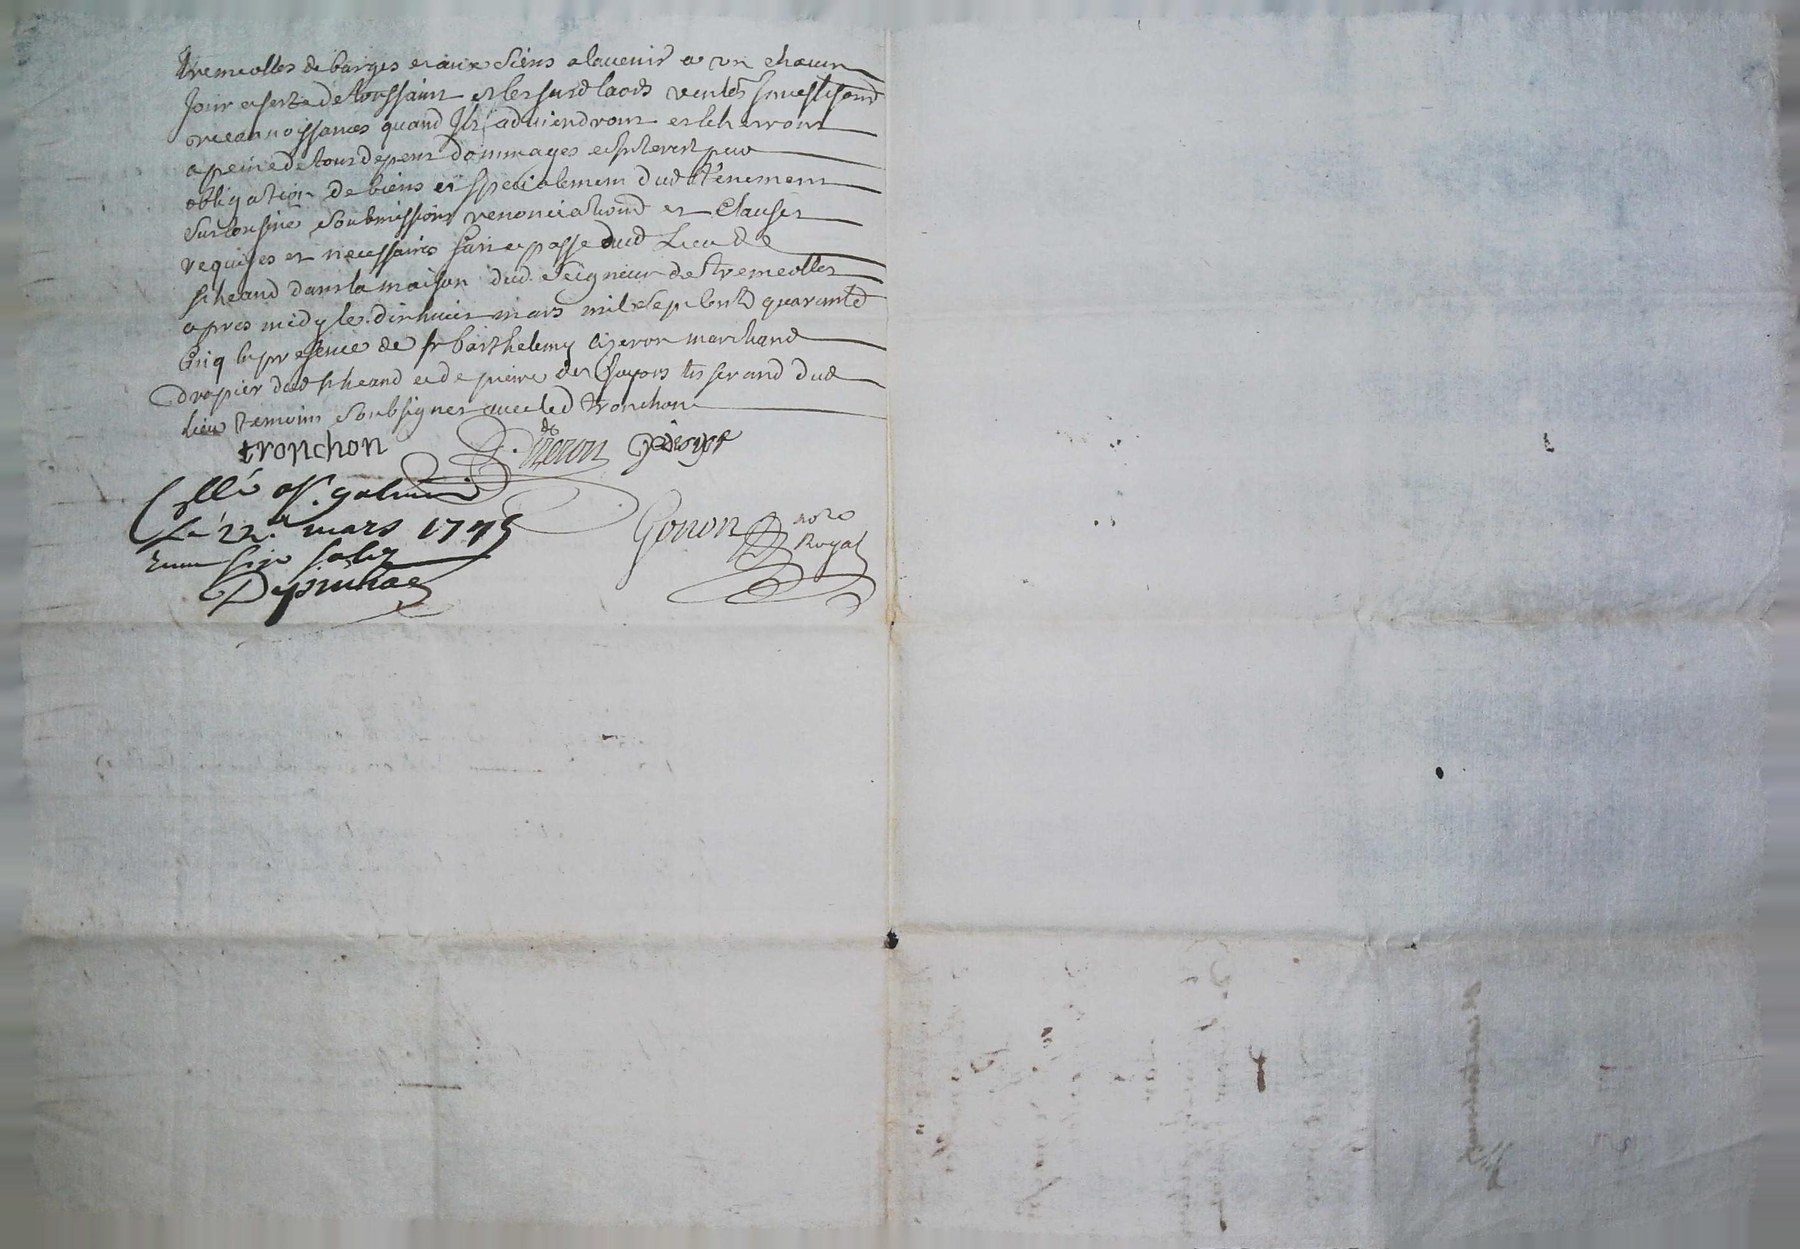 tremeolles de barges et aux siens a lavenir a un chacun
jour et feste de toussaint et les susd laods ventes investisond
reconnoissances quand Ils adviendront et lcherront
a peine de tous depens dommages et Interest par
obligation de biens et specialement dud tenement
sur confiné soubmissions renonciations et Clauses
requises et necessaires fait et passe dud Lieu de
st heand dans la maison dud. seigneur de tremeolles
apres midy le dixhuit mars mil sept cent quarante
cinq En presence de sr barthelemy cizeron marchand
drapier dud st heand et de pierre des Joyos tisserand dud
lieu temoins soubsignes avec led tronchon
tronchon Cizeron
Collé a St. galmier
Le 22e. mars 1745
Gonon nore Royal